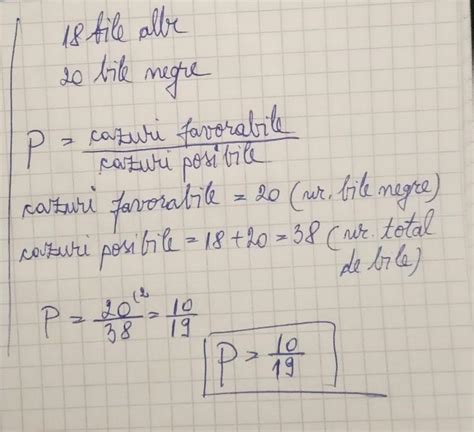 18 bile albe
20 bile negre
P = cazuri favorabile / cazuri posibile
cazuri favorabile = 20 (nr. bile negre)
cazuri posibile = 18 + 20 = 38 (nr. total
de bile)
P = 20/38 (2 = 10/19
P = 10/19